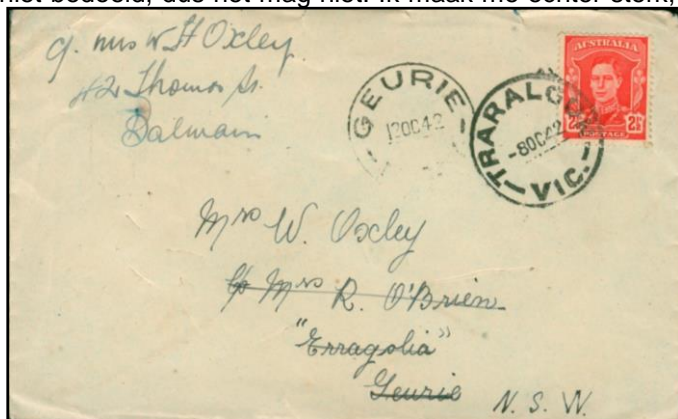 niet bedoeld, dus het mag niet. Ik maak me echter sterk,
c/. Mrs W H Oxley
42 Thomas St.
Balmain
GEURIE
12OC42
TRARALGON
-8OC42
VIC.
AUSTRALIA
2½
POSTAGE
2½
Mrs W. Oxley
c/o Mrs R. O'Brien
"Erragolia"
Geurie N. S. W.